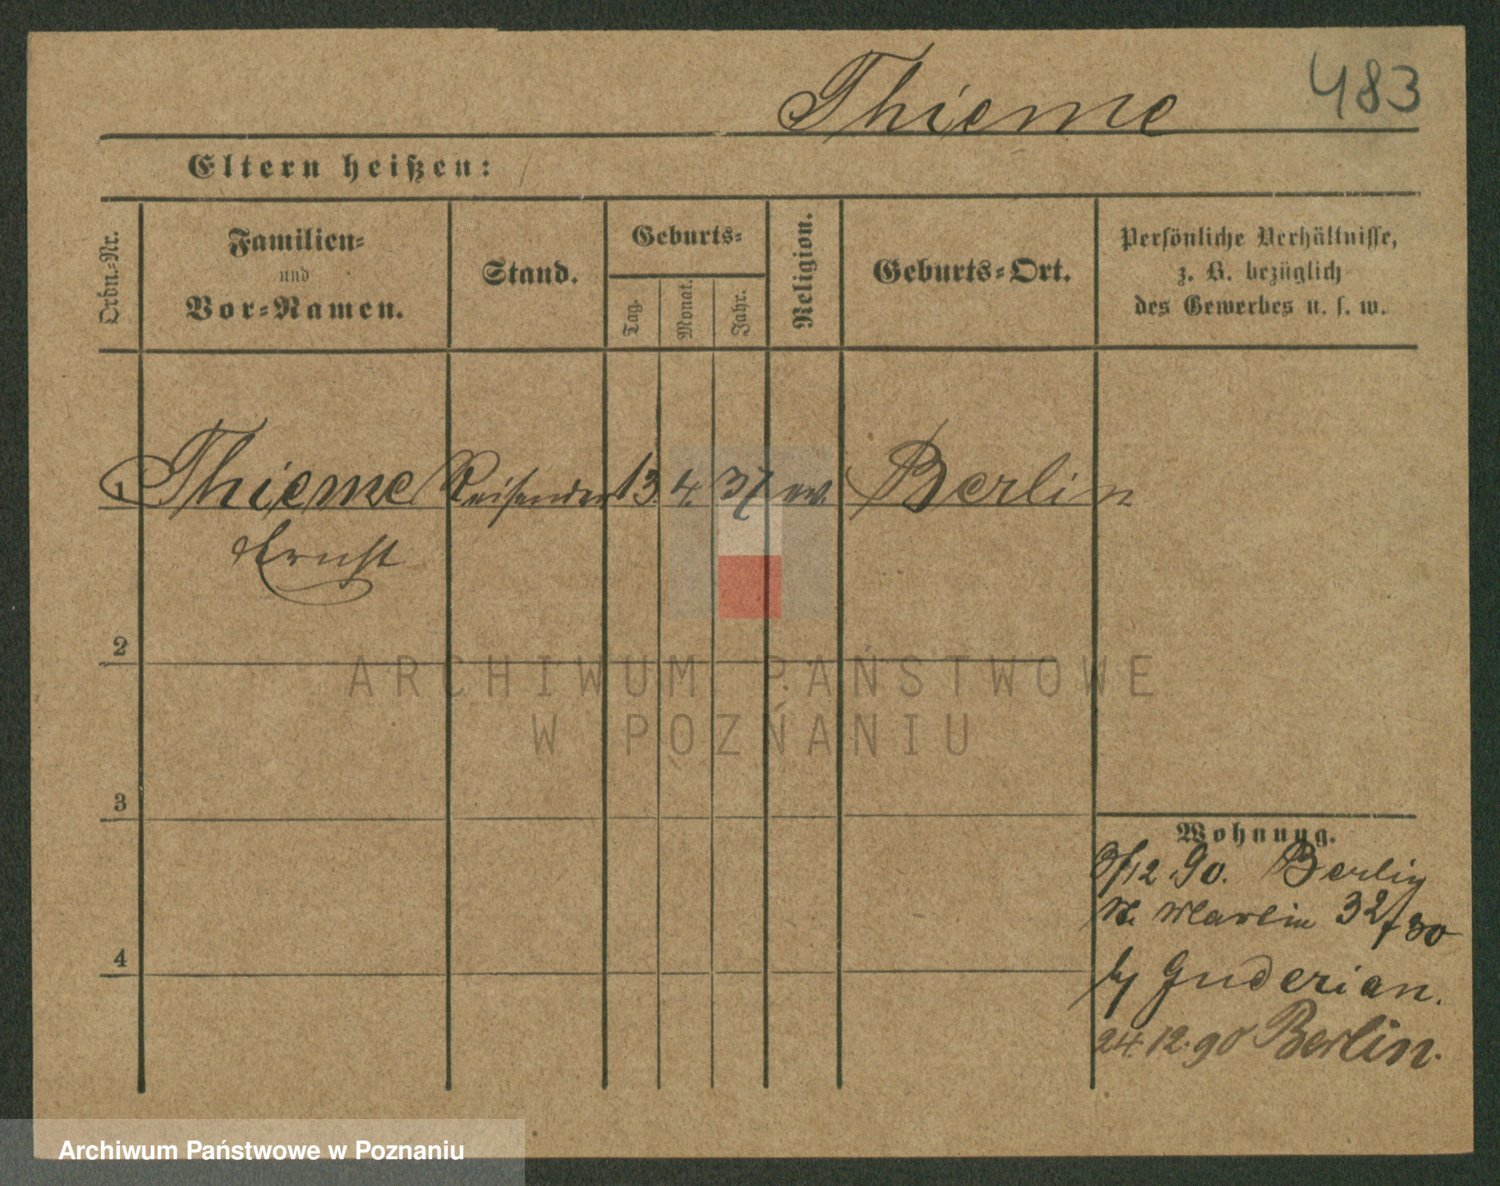 Thieme 483
Eltern heißen:
Ordn.-Nr.
Familien-
und
Vor-Namen.
Stand.
Geburts-
Tag.
Monat.
Jahr.
Religion.
Geburts-Ort.
Persönliche Verhältnisse,
z. B. bezüglich
des Gewerbes u. s. w.
1 Thieme Reisender 13. 4. 37 ev. Berlin
Ernst
2
3
4
Wohnung.
3/12.90. Berlin
32/30
Guderian.
24.12.90 Berlin.
ARCHIWUM PAŃSTWOWE
W POZNANIU
Archiwum Państwowe w Poznaniu